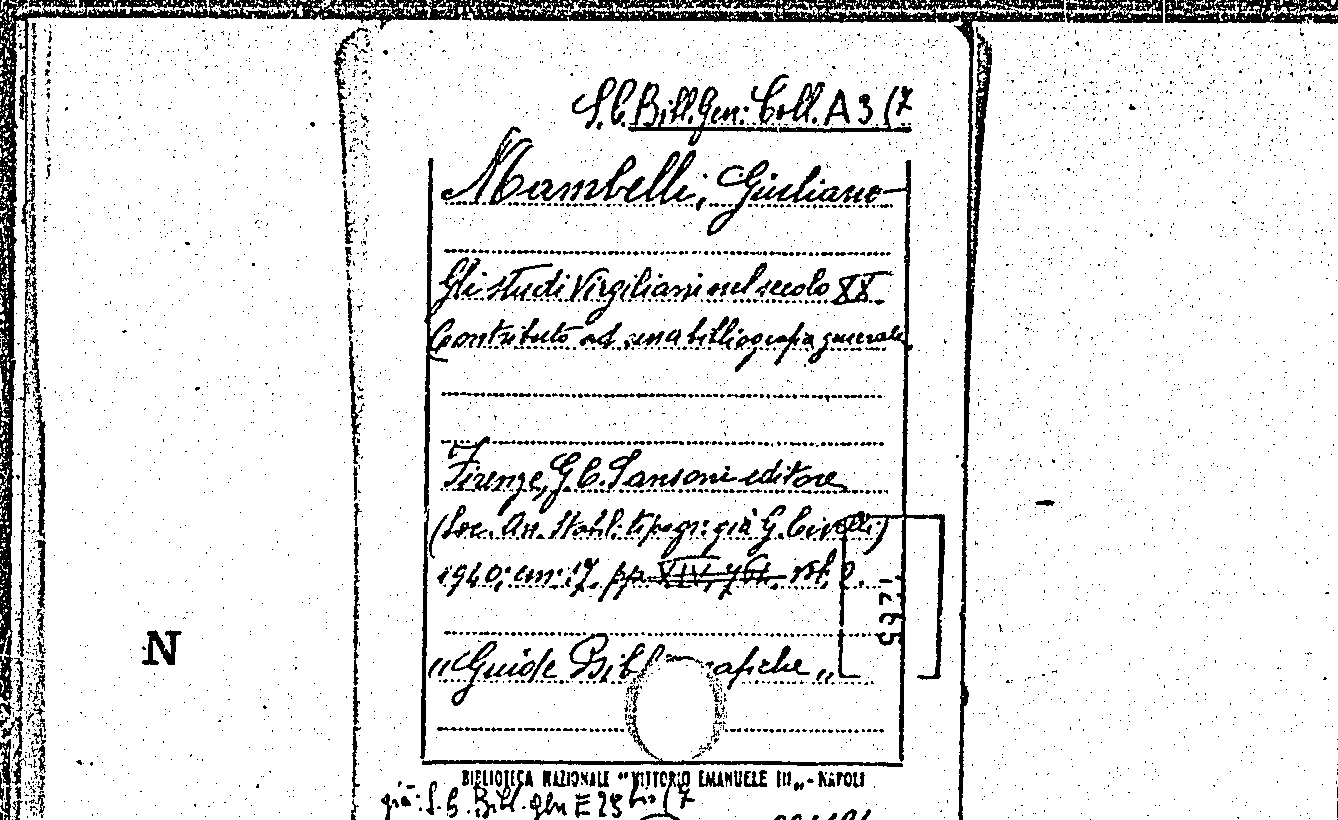 S.C. Bibl. Gen: Coll. A 3 (7
Mambelli, Giuliano
Gli studi Virgiliani nel secolo XX.
Contributo ad una bibliografia generale.
Firenze, G. C. Sansoni editore
(Soc. An. Stabil. tipogr. già G. Civelli)
1940; cm: 17. pp. XIV, vol. 2.
5971
"Guide Bibl afiche„
N
BIBLIOTECA NAZIONALE "VITTORIO EMANUELE III„ - NAPOLI
già: S. C. Bibl. Gen E 25 bis (7